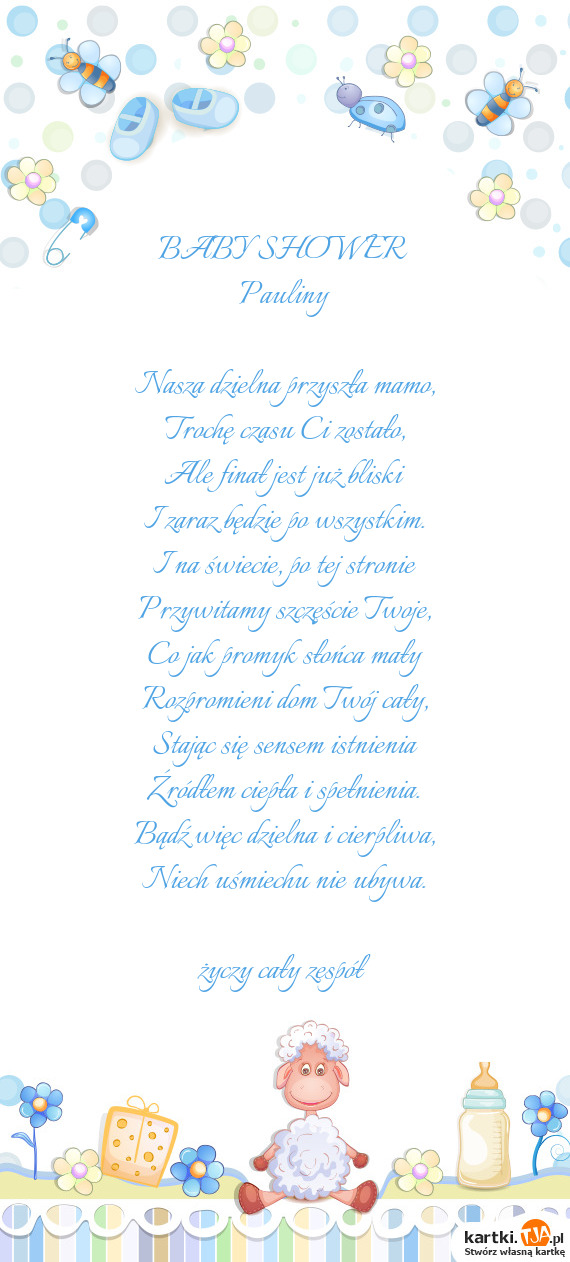 BABY SHOWER
Pauliny
Nasza dzielna przyszła mamo,
Trochę czasu Ci zostało,
Ale finał jest już bliski
I zaraz będzie po wszystkim.
I na świecie, po tej stronie
Przywitamy szczęście Twoje,
Co jak promyk słońca mały
Rozpromieni dom Twój cały,
Stając się sensem istnienia
Źródłem ciepła i spełnienia.
Bądź więc dzielna i cierpliwa,
Niech uśmiechu nie ubywa.
życzy cały zespół
kartki.TJA.pl
Stwórz własną kartkę